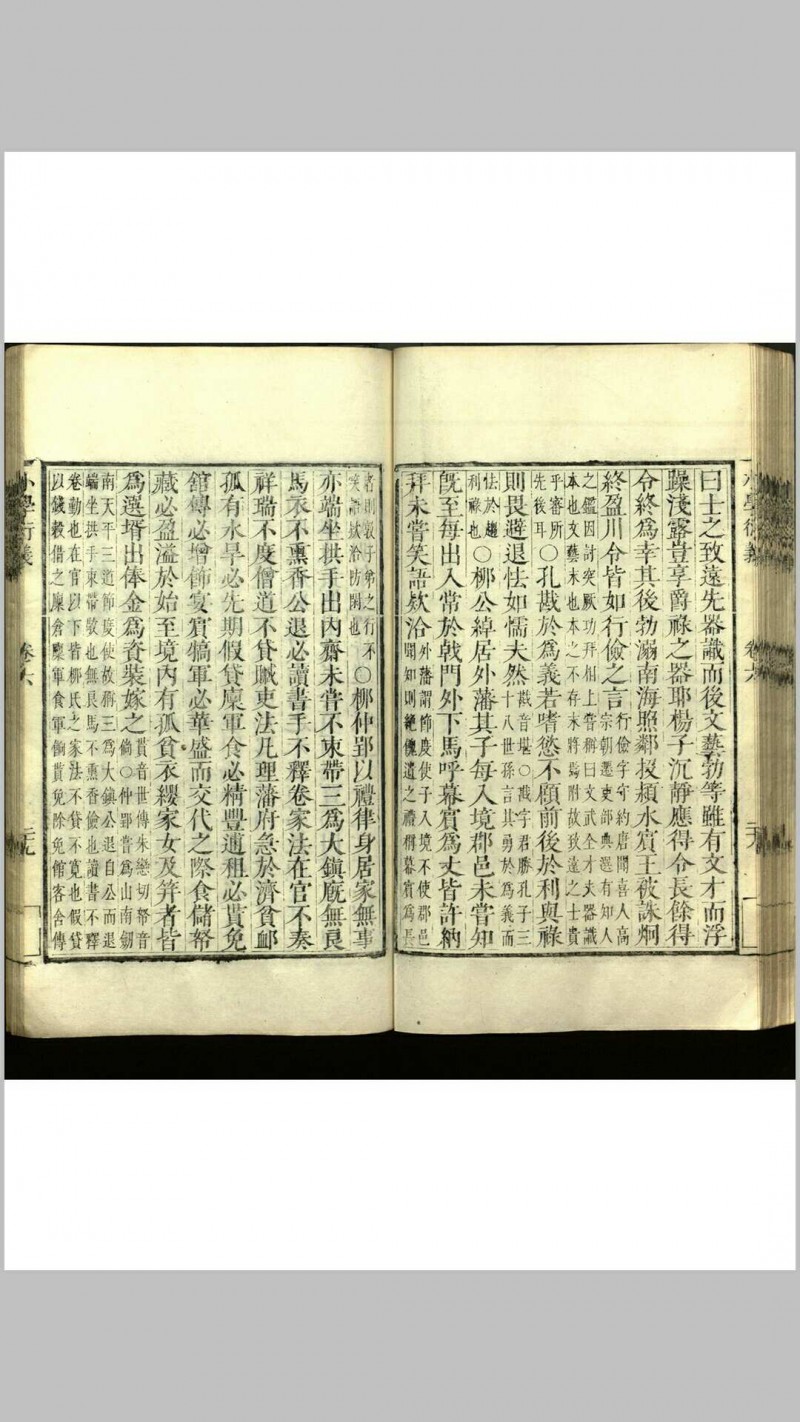 小學衍義 卷六
曰士之致遠先器識而後文藝勃等雖有文才而浮
躁淺露豈享爵祿之器耶楊子沉靜應得令長餘得
令終爲幸其後勃溺南海照鄰投潁水賓王被誅炯
終盈川令皆如行儉之言 行儉字守約唐聞喜人高
宗朝遷吏部典選有知人
之鑑因討突厥功拜相上嘗稱曰文武全才夫器識
本也文藝末也本之不存末將焉附故致遠之士貴
乎審所
先後耳
○孔戡於爲義若嗜慾不顧前後於利與祿
則畏避退怯如懦夫然 戡音堪○戡字君勝孔子三
十八世孫言其勇於爲義而
怯於趨
利祿也
○柳公綽居外藩其子每入境郡邑未嘗知
既至每出入常於戟門外下馬呼幕賓爲丈皆許納
拜未嘗笑語欵洽 外藩謂節度使子入境不使郡邑
聞知則絶餽遺之禮稱幕賓爲長
者則敦子弟之行不
笑語欵洽防閑也
○柳仲郢以禮律身居家無事
亦端坐拱手出內齋未嘗不束帶三爲大鎮厩無良
馬衣不熏香公退必讀書手不釋卷家法在官不奏
祥瑞不度僧道不貸贓吏法凡理藩府急於濟貧卹
孤有水旱必先期假貸廩軍食必精豐逋租必貰免
舘傳必增飾宴賓犒軍必華盛而交代之際食儲帑
藏必盈溢於始至境內有孤貧衣纓家女及笄者皆
爲選壻出俸金爲資裝嫁之 貰音世傳朱戀切帑音
倘○仲郢嘗爲山南劒
南天平三道節度使故稱三爲大鎮公退自公而退
端坐拱手束帶敬也無良馬不熏香儉也讀書不釋
卷勤也在官以下皆柳氏之家法不貸不寬也假貸
以錢穀借之廩倉廩軍食軍餉貰免除免館客舍傳
小學衍義 卷六 二十九